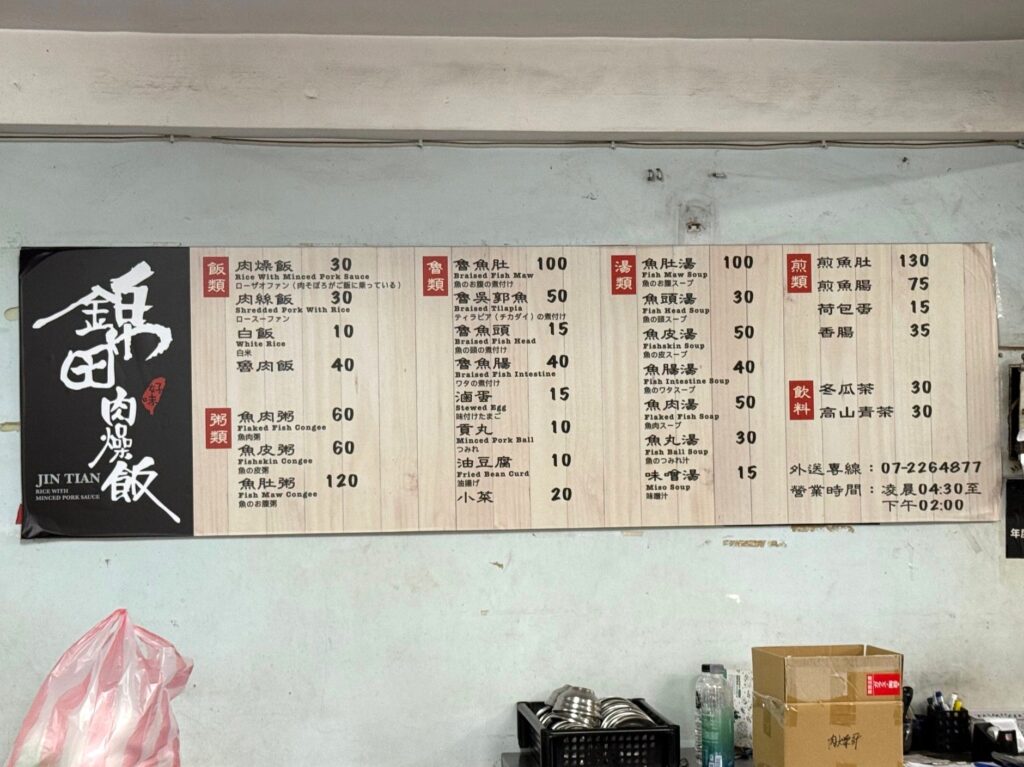 錦田肉燥飯
好味
JIN TIAN
RICE WITH
MINCED PORK SAUCE
飯類
肉燥飯 30
Rice With Minced Pork Sauce
ローザオファン(肉そぼろがご飯に乗っている)
肉絲飯 30
Shredded Pork With Rice
ロースーファン
白飯 10
White Rice
白米
魯肉飯 40
粥類
魚肉粥 60
Flaked Fish Congee
魚肉粥
魚皮粥 60
Fishskin Congee
魚の皮粥
魚肚粥 120
Fish Maw Congee
魚のお腹粥
魯類
魯魚肚 100
Braised Fish Maw
魚のお腹の煮付け
魯吳郭魚 50
Braised Tilapia
ティラピア(チカダイ)の煮付け
魯魚頭 15
Braised Fish Head
魚の頭の煮付け
魯魚腸 40
Braised Fish Intestine
ワタの煮付け
滷蛋 15
Stewed Egg
味付けたまご
貢丸 10
Minced Pork Ball
つみれ
油豆腐 10
Fried Bean Curd
油揚げ
小菜 20
湯類
魚肚湯 100
Fish Maw Soup
魚のお腹スープ
魚頭湯 30
Fish Head Soup
魚の頭スープ
魚皮湯 50
Fishskin Soup
魚の皮スープ
魚腸湯 40
Fish Intestine Soup
魚のワタスープ
魚肉湯 50
Flaked Fish Soap
魚肉スープ
魚丸湯 30
Fish Ball Soup
魚のつみれ汁
味噌湯 15
Miso Soup
味噌汁
煎類
煎魚肚 130
煎魚腸 75
荷包蛋 15
香腸 35
飲料
冬瓜茶 30
高山青茶 30
外送專線：07-2264877
營業時間：凌晨04:30至
下午02:00